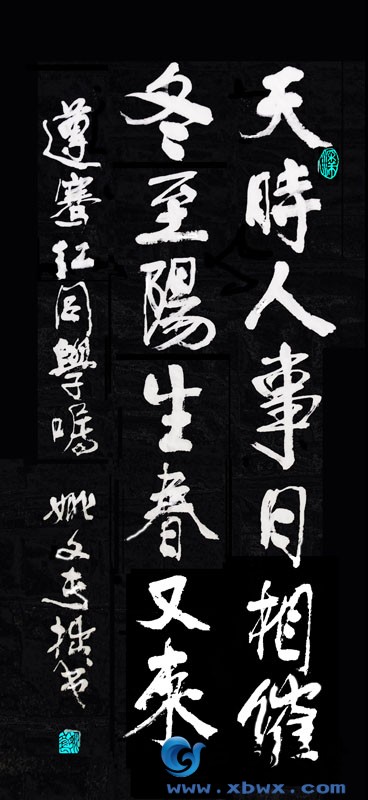 天時人事日相催
冬至陽生春又來
遵骞红同學嘱
姚文忠拙书
www.xbwx.com